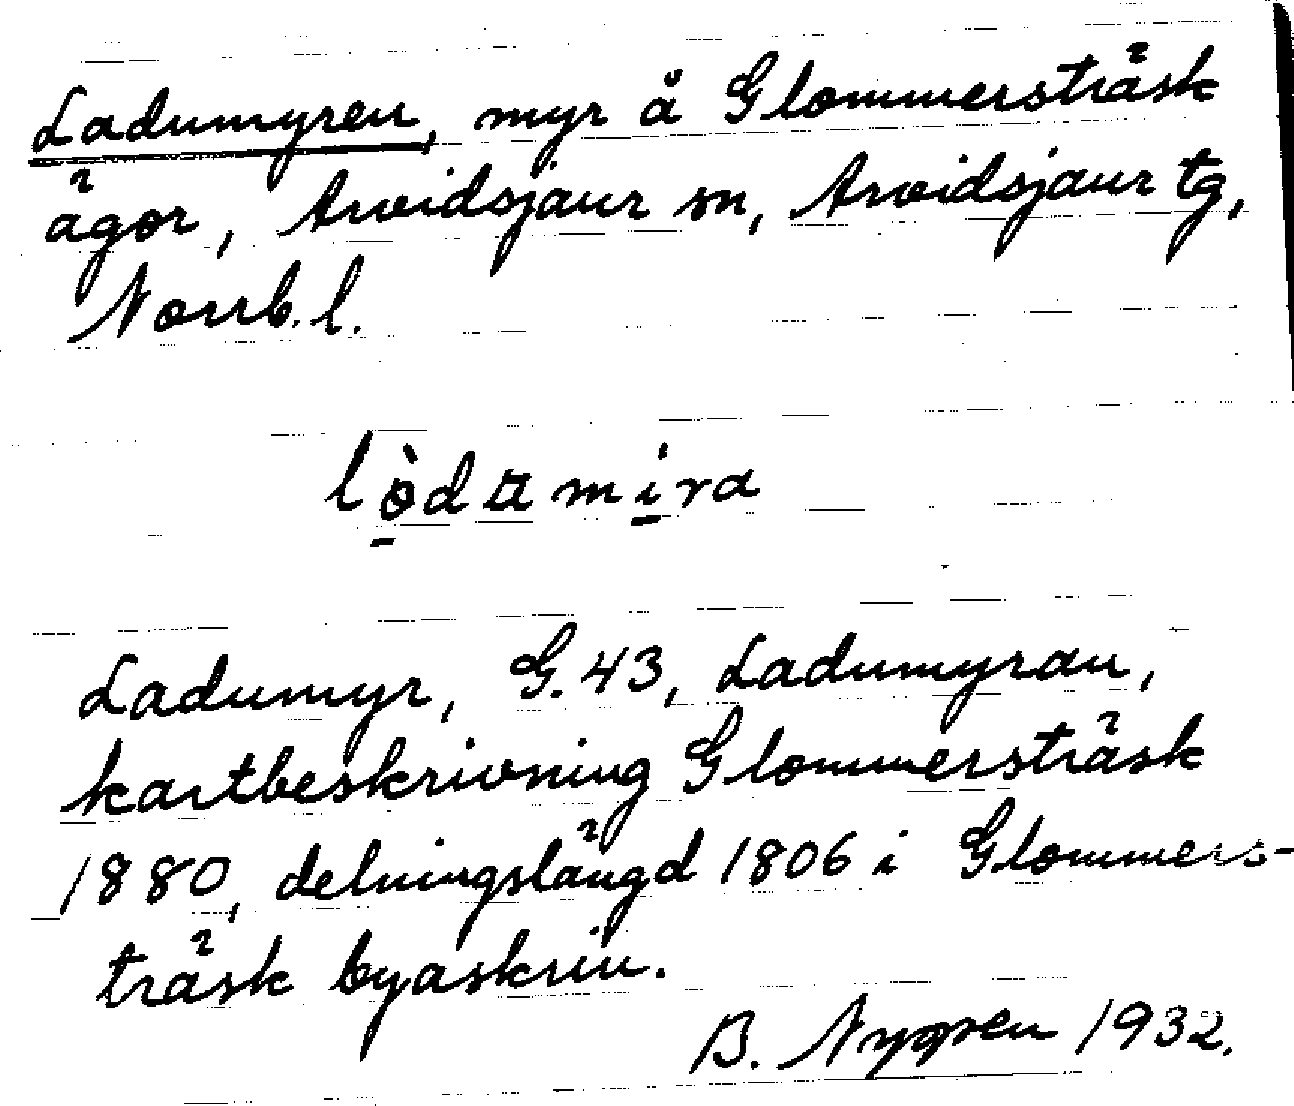 Ladumyren, myr å Glommersträsk
ägor, Arvidsjaur sn, Arvidsjaur tg,
Norrb. l.
lò̠dami̠ra
Ladumyr, G. 43, Ladumyran,
kartbeskrivning Glommersträsk
1880, delningslängd 1806 i Glommers-
träsk byaskrin.
B. Nygren 1932.